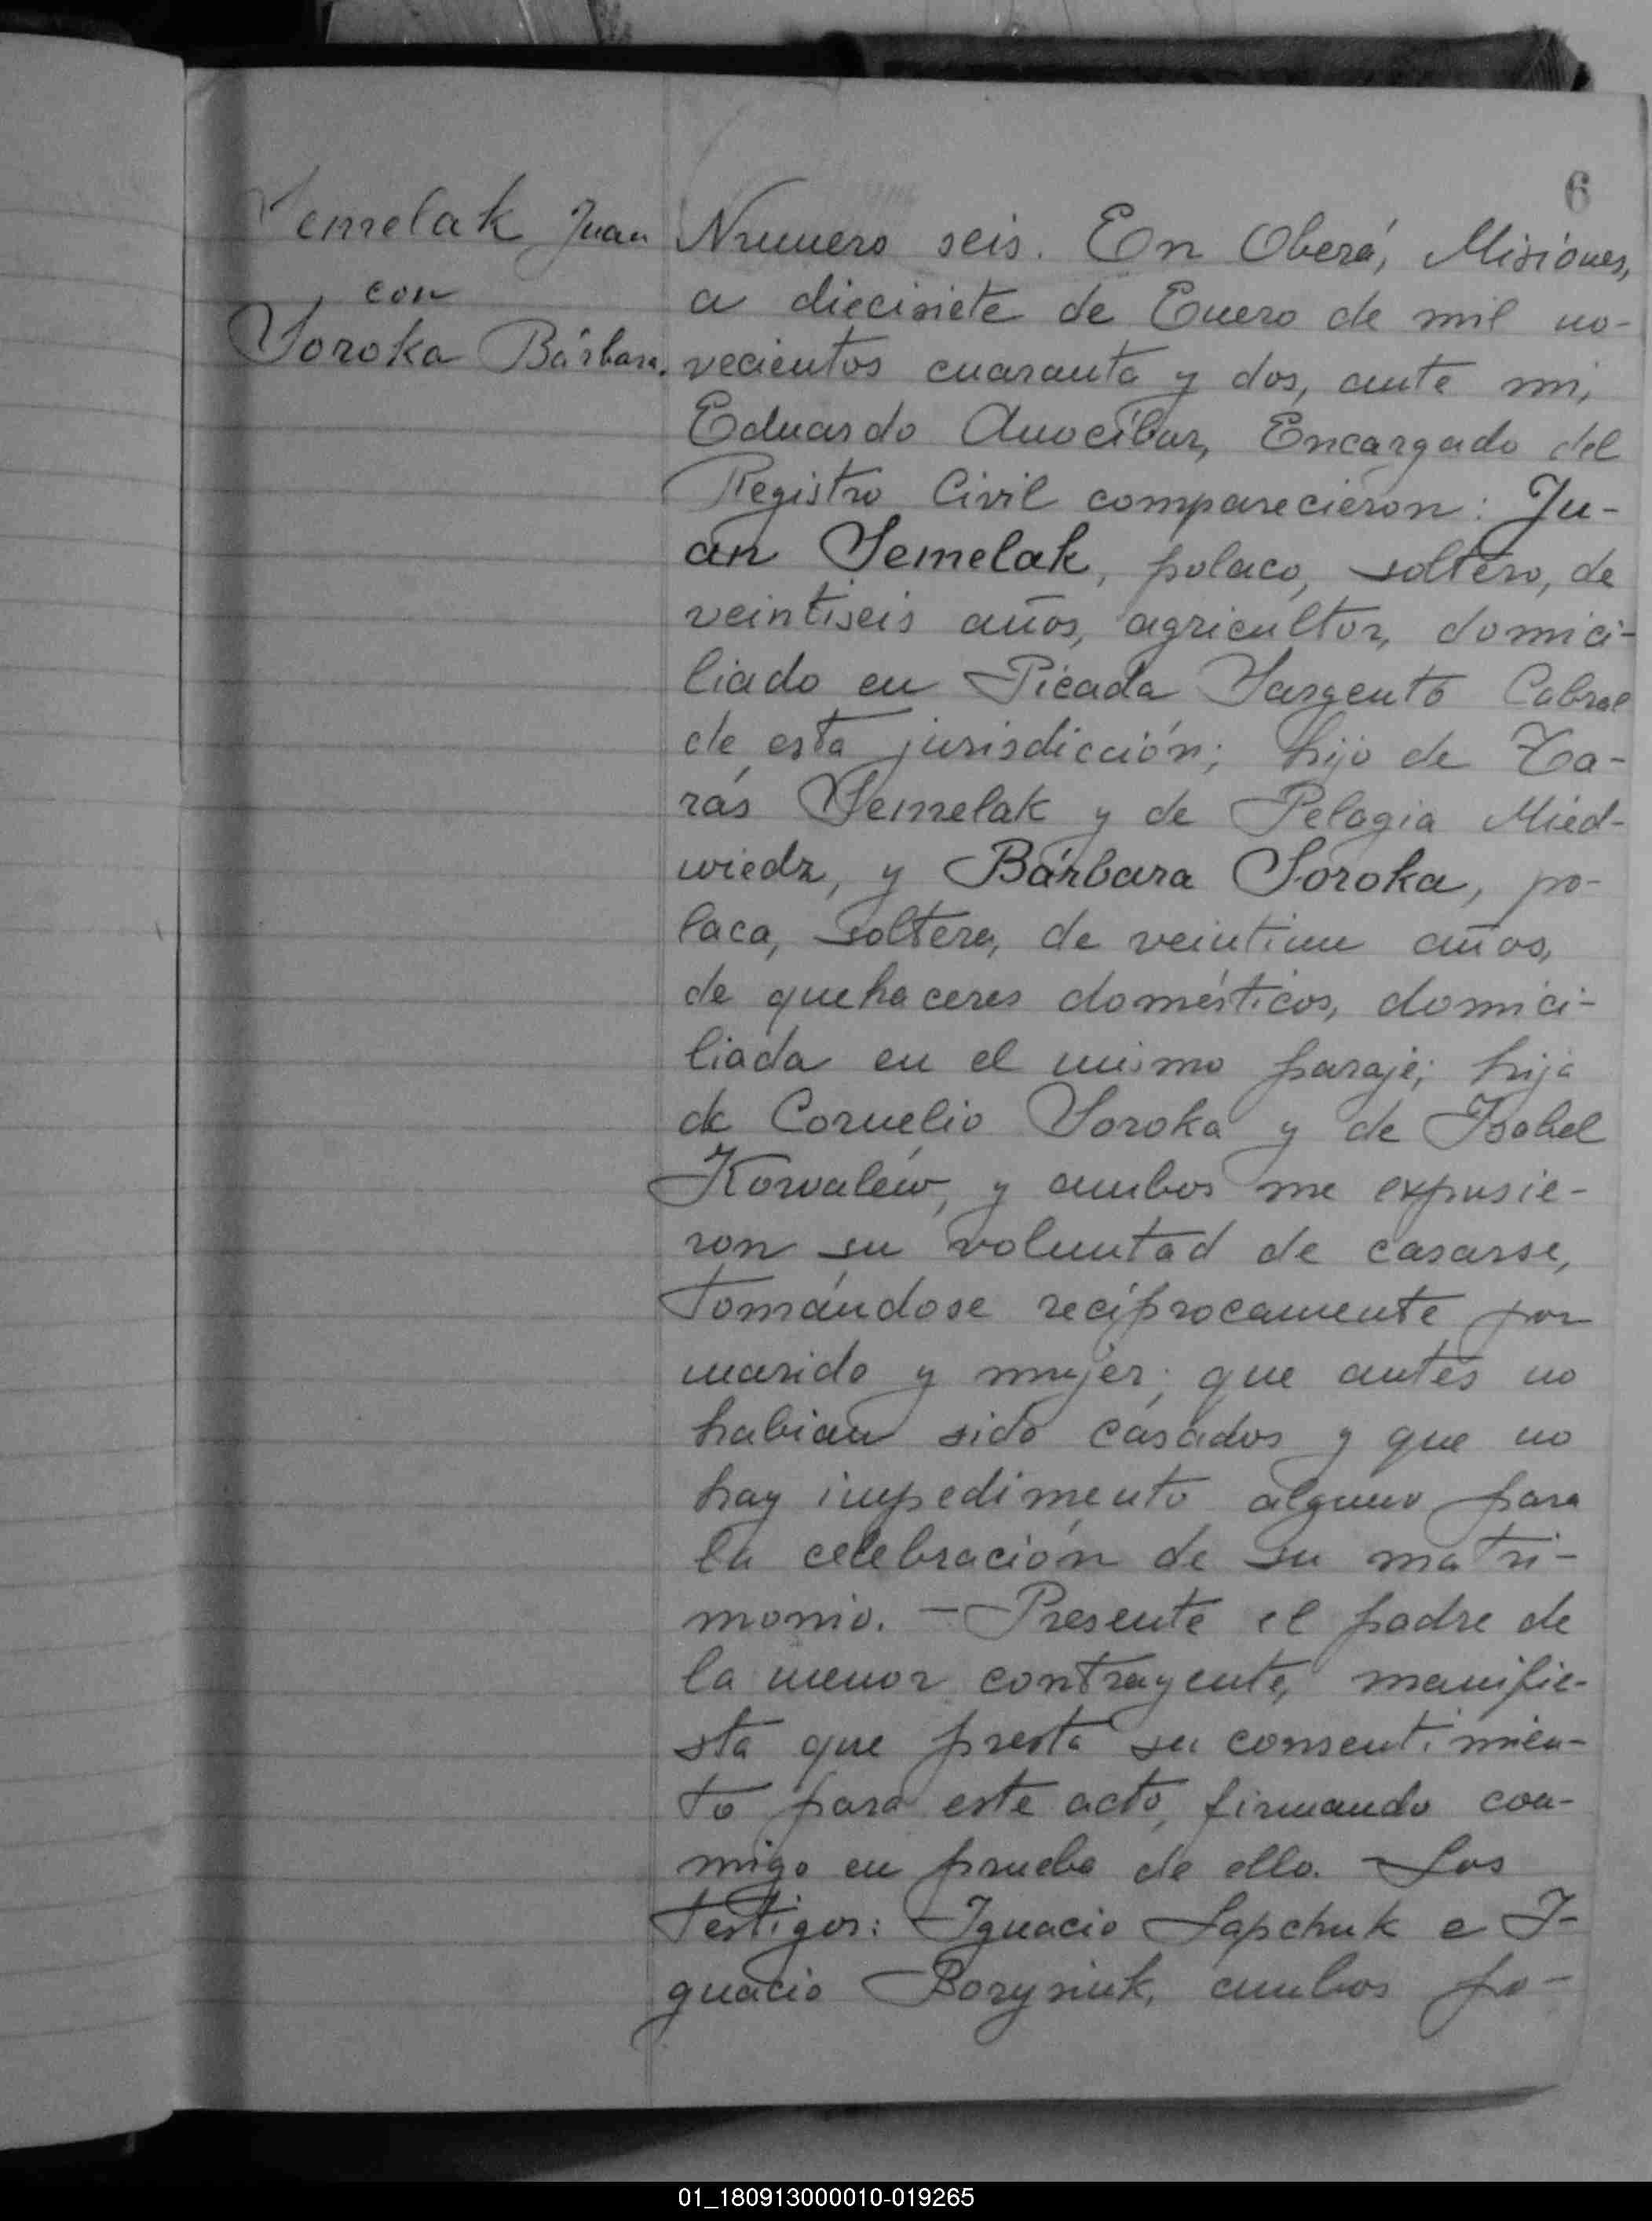 6
Semelak Juan
con
Soroka Bárbara.
Numero seis. En Oberá, Misiones,
a diecisiete de Enero de mil no-
vecientos cuaranta y dos, ante mi,
Eduardo Anocibar, Encargado del
Registro Civil comparecieron: Ju-
an Semelak, polaco, soltero, de
veintiseis años, agricultor, domici-
liado en Picada Sargento Cabral
de esta jurisdicción; hijo de Ta-
rás Semelak y de Pelagia Mied-
wiedz, y Bárbara Soroka, po-
laca, soltera, de veintiun años,
de quehaceres domésticos, domici-
liada en el mismo paraje; hija
de Cornelio Soroka y de Isabel
Kowalów, y ambos me expusie-
ron su voluntad de casarse,
tomándose recíprocamente por
marido y mujer; que antes no
habian sido casados y que no
hay impedimento alguno para
la celebración de su matri-
monio. - Presente el padre de
la menor contrayente, manifie-
sta que presta su consentimien-
to para este acto, firmando con-
migo en prueba de ello. Los
testigos: Ignacio Lapchuk e I-
gnacio Borysiuk, ambos po-
01_180913000010-019265